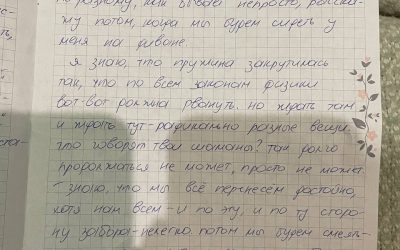 по разному, как бывает непросто, расска-
жу потом, когда мы будем сидеть у
меня на диване.
Я знаю, что пружина закрутилась
так, что по всем законам физики
вот-вот должна рвануть. но ждать там
и ждать тут - радикально разные вещи.
что говорят твои шаманы? так долго
продолжаться не может, просто не может
знаю, что мы всё перенесем достойно,
хотя нам всем - и по эту, и по ту сторо-
ну забора - нелегко. потом мы будем смеять-